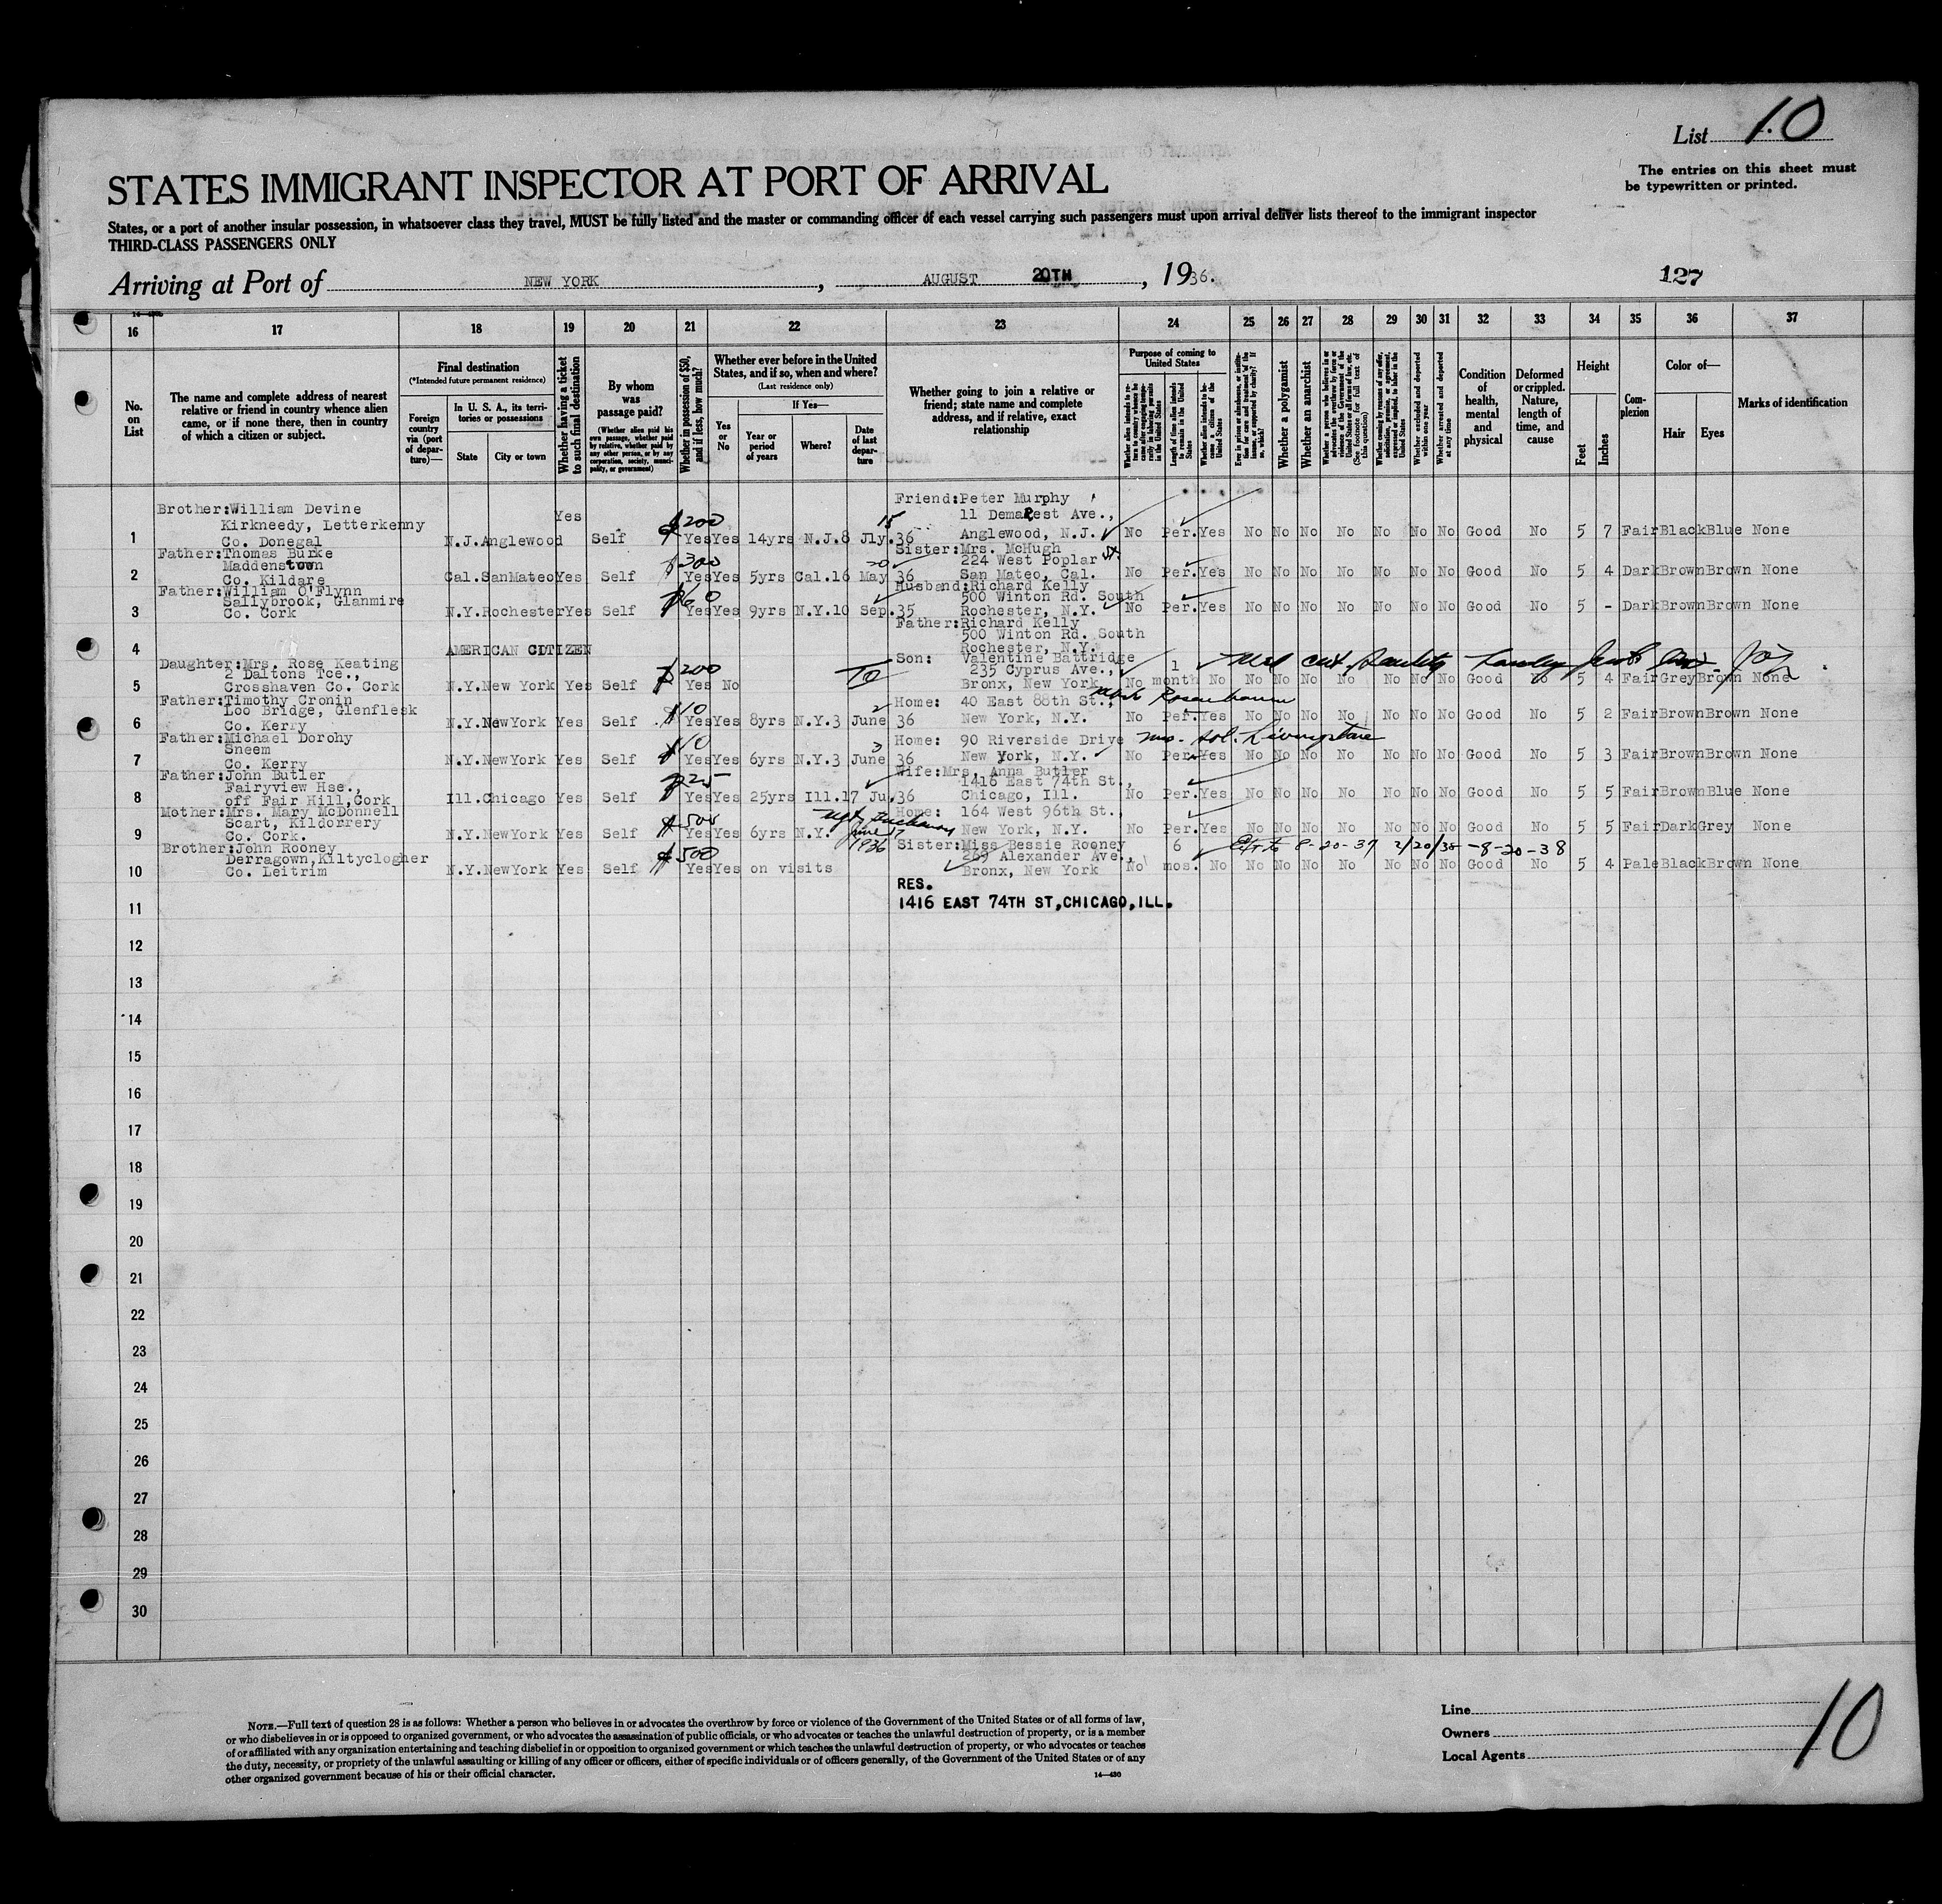 List 10
The entries on this sheet must
be typewritten or printed.
STATES IMMIGRANT INSPECTOR AT PORT OF ARRIVAL
States, or a port of another insular possession, in whatsoever class they travel, MUST be fully listed and the master or commanding officer of each vessel carrying such passengers must upon arrival deliver lists thereof to the immigrant inspector
THIRD-CLASS PASSENGERS ONLY
Arriving at Port of NEW YORK, AUGUST 20TH, 1936.
127
16 17 18 19 20 21 22 23 24 25 26 27 28 29 30 31 32 33 34 35 36 37
No. on List
The name and complete address of nearest
relative or friend in country whence alien
came, or if none there, then in country
of which a citizen or subject.
Final destination
(*Intended future permanent residence)
Foreign country via (port of departure)—
In U. S. A., its territories or possessions
State
City or town
Whether having a ticket to such final destination
By whom was passage paid?
(Whether alien paid his own passage, whether paid by relative, whether paid by any other person, or by any corporation, society, municipality, or government)
Whether in possession of $50, and if less, how much?
Whether ever before in the United
States, and if so, when and where?
(Last residence only)
Yes or No
If Yes—
Year or period of years
Where?
Date of last departure
Whether going to join a relative or
friend; state name and complete
address, and if relative, exact
relationship
Purpose of coming to United States
Length of time alien intends to remain in the United States
Whether alien intends to become a citizen of the United States
Whether a polygamist
Whether an anarchist
Whether excluded and deported within one year
Whether arrested and deported at any time
Condition of health, mental and physical
Deformed or crippled. Nature, length of time, and cause
Height
Feet
Inches
Complexion
Color of—
Hair
Eyes
Marks of identification
Brother:William Devine
Kirkneedy, Letterkenny
Co. Donegal
1 N.J. Anglewood Yes Self $200 Yes Yes 14yrs N.J. 8 Jly. 36 15
Friend:Peter Murphy
11 Demarest Ave.,
Anglewood, N.J. No Per. Yes No No No No No No No Good No 5 7 Fair Black Blue None
Father:Thomas Burke
Maddenstown
Co. Kildare
2 Cal. SanMateo Yes Self $300 Yes Yes 5yrs Cal. 16 May 36
Sister:Mrs. McHugh
224 West Poplar St.
San Mateo, Cal. No Per. Yes No No No No No No No Good No 5 4 Dark Brown Brown None
Father:William O'Flynn
Sallybrook, Glanmire
Co. Cork
3 N.Y. Rochester Yes Self $60 Yes Yes 9yrs N.Y. 10 Sep. 35
Husband:Richard Kelly
500 Winton Rd. South
Rochester, N.Y. No Per. Yes No No No No No No No Good No 5 - Dark Brown Brown None
4 AMERICAN CITIZEN
Father:Richard Kelly
500 Winton Rd. South
Rochester, N.Y.
Daughter:Mrs. Rose Keating
2 Daltons Tce.,
Crosshaven Co. Cork
5 N.Y. New York Yes Self $200 Yes No
Son: Valentine Battridge
235 Cyprus Ave.,
Bronx, New York No 1 month No No No No No No No No Good No 5 4 Fair Grey Brown None
Father:Timothy Cronin
Loo Bridge, Glenflesk
Co. Kerry
6 N.Y. NewYork Yes Self $10 Yes Yes 8yrs N.Y. 3 June 36 2
Home: 40 East 88th St., Rosenbaum
New York, N.Y. No Per. Yes No No No No No No No Good No 5 2 Fair Brown Brown None
Father:Michael Dorohy
Sneem
Co. Kerry
7 N.Y. NewYork Yes Self $10 Yes Yes 6yrs N.Y. 3 June 36 3
Home: 90 Riverside Drive Mrs. Sol. Livingstone
New York, N.Y. No Per. Yes No No No No No No No Good No 5 3 Fair Brown Brown None
Father:John Butler
Fairyview Hse.,
off Fair Hill, Cork
8 Ill. Chicago Yes Self $25 Yes Yes 25yrs Ill. 17 Ju. 36
Wife:Mrs. Anna Butler
1416 East 74th St.,
Chicago, Ill. No Per. Yes No No No No No No No Good No 5 5 Fair Brown Blue None
Mother:Mrs. Mary McDonnell
Scart, Kildorrery
Co. Cork.
9 N.Y. NewYork Yes Self $500 Yes Yes 6yrs N.Y. June 17 1936
Home: 164 West 96th St.,
New York, N.Y. No Per. Yes No No No No No No No Good No 5 5 Fair Dark Grey None
Brother:John Rooney
Derragown, Kiltyclogher
Co. Leitrim
10 N.Y. NewYork Yes Self $500 Yes Yes on visits
Sister:Miss Bessie Rooney
269 Alexander Ave.,
Bronx, New York No 6 mos. No No No No No No No No Good No 5 4 Pale Black Brown None
8-20-37 2/20/38 -8-20-38
RES.
11 1416 EAST 74TH ST, CHICAGO, ILL.
12
13
14
15
16
17
18
19
20
21
22
23
24
25
26
27
28
29
30
NOTE.—Full text of question 28 is as follows: Whether a person who believes in or advocates the overthrow by force or violence of the Government of the United States or of all forms of law,
or who disbelieves in or is opposed to organized government, or who advocates the assassination of public officials, or who advocates or teaches the unlawful destruction of property, or is a member
of or affiliated with any organization entertaining and teaching disbelief in or opposition to organized government or which teaches the unlawful destruction of property, or who advocates or teaches
the duty, necessity, or propriety of the unlawful assaulting or killing of any officer or officers, either of specific individuals or of officers generally, of the Government of the United States or of any
other organized government because of his or their official character.
14—430
Line
Owners
Local Agents
10